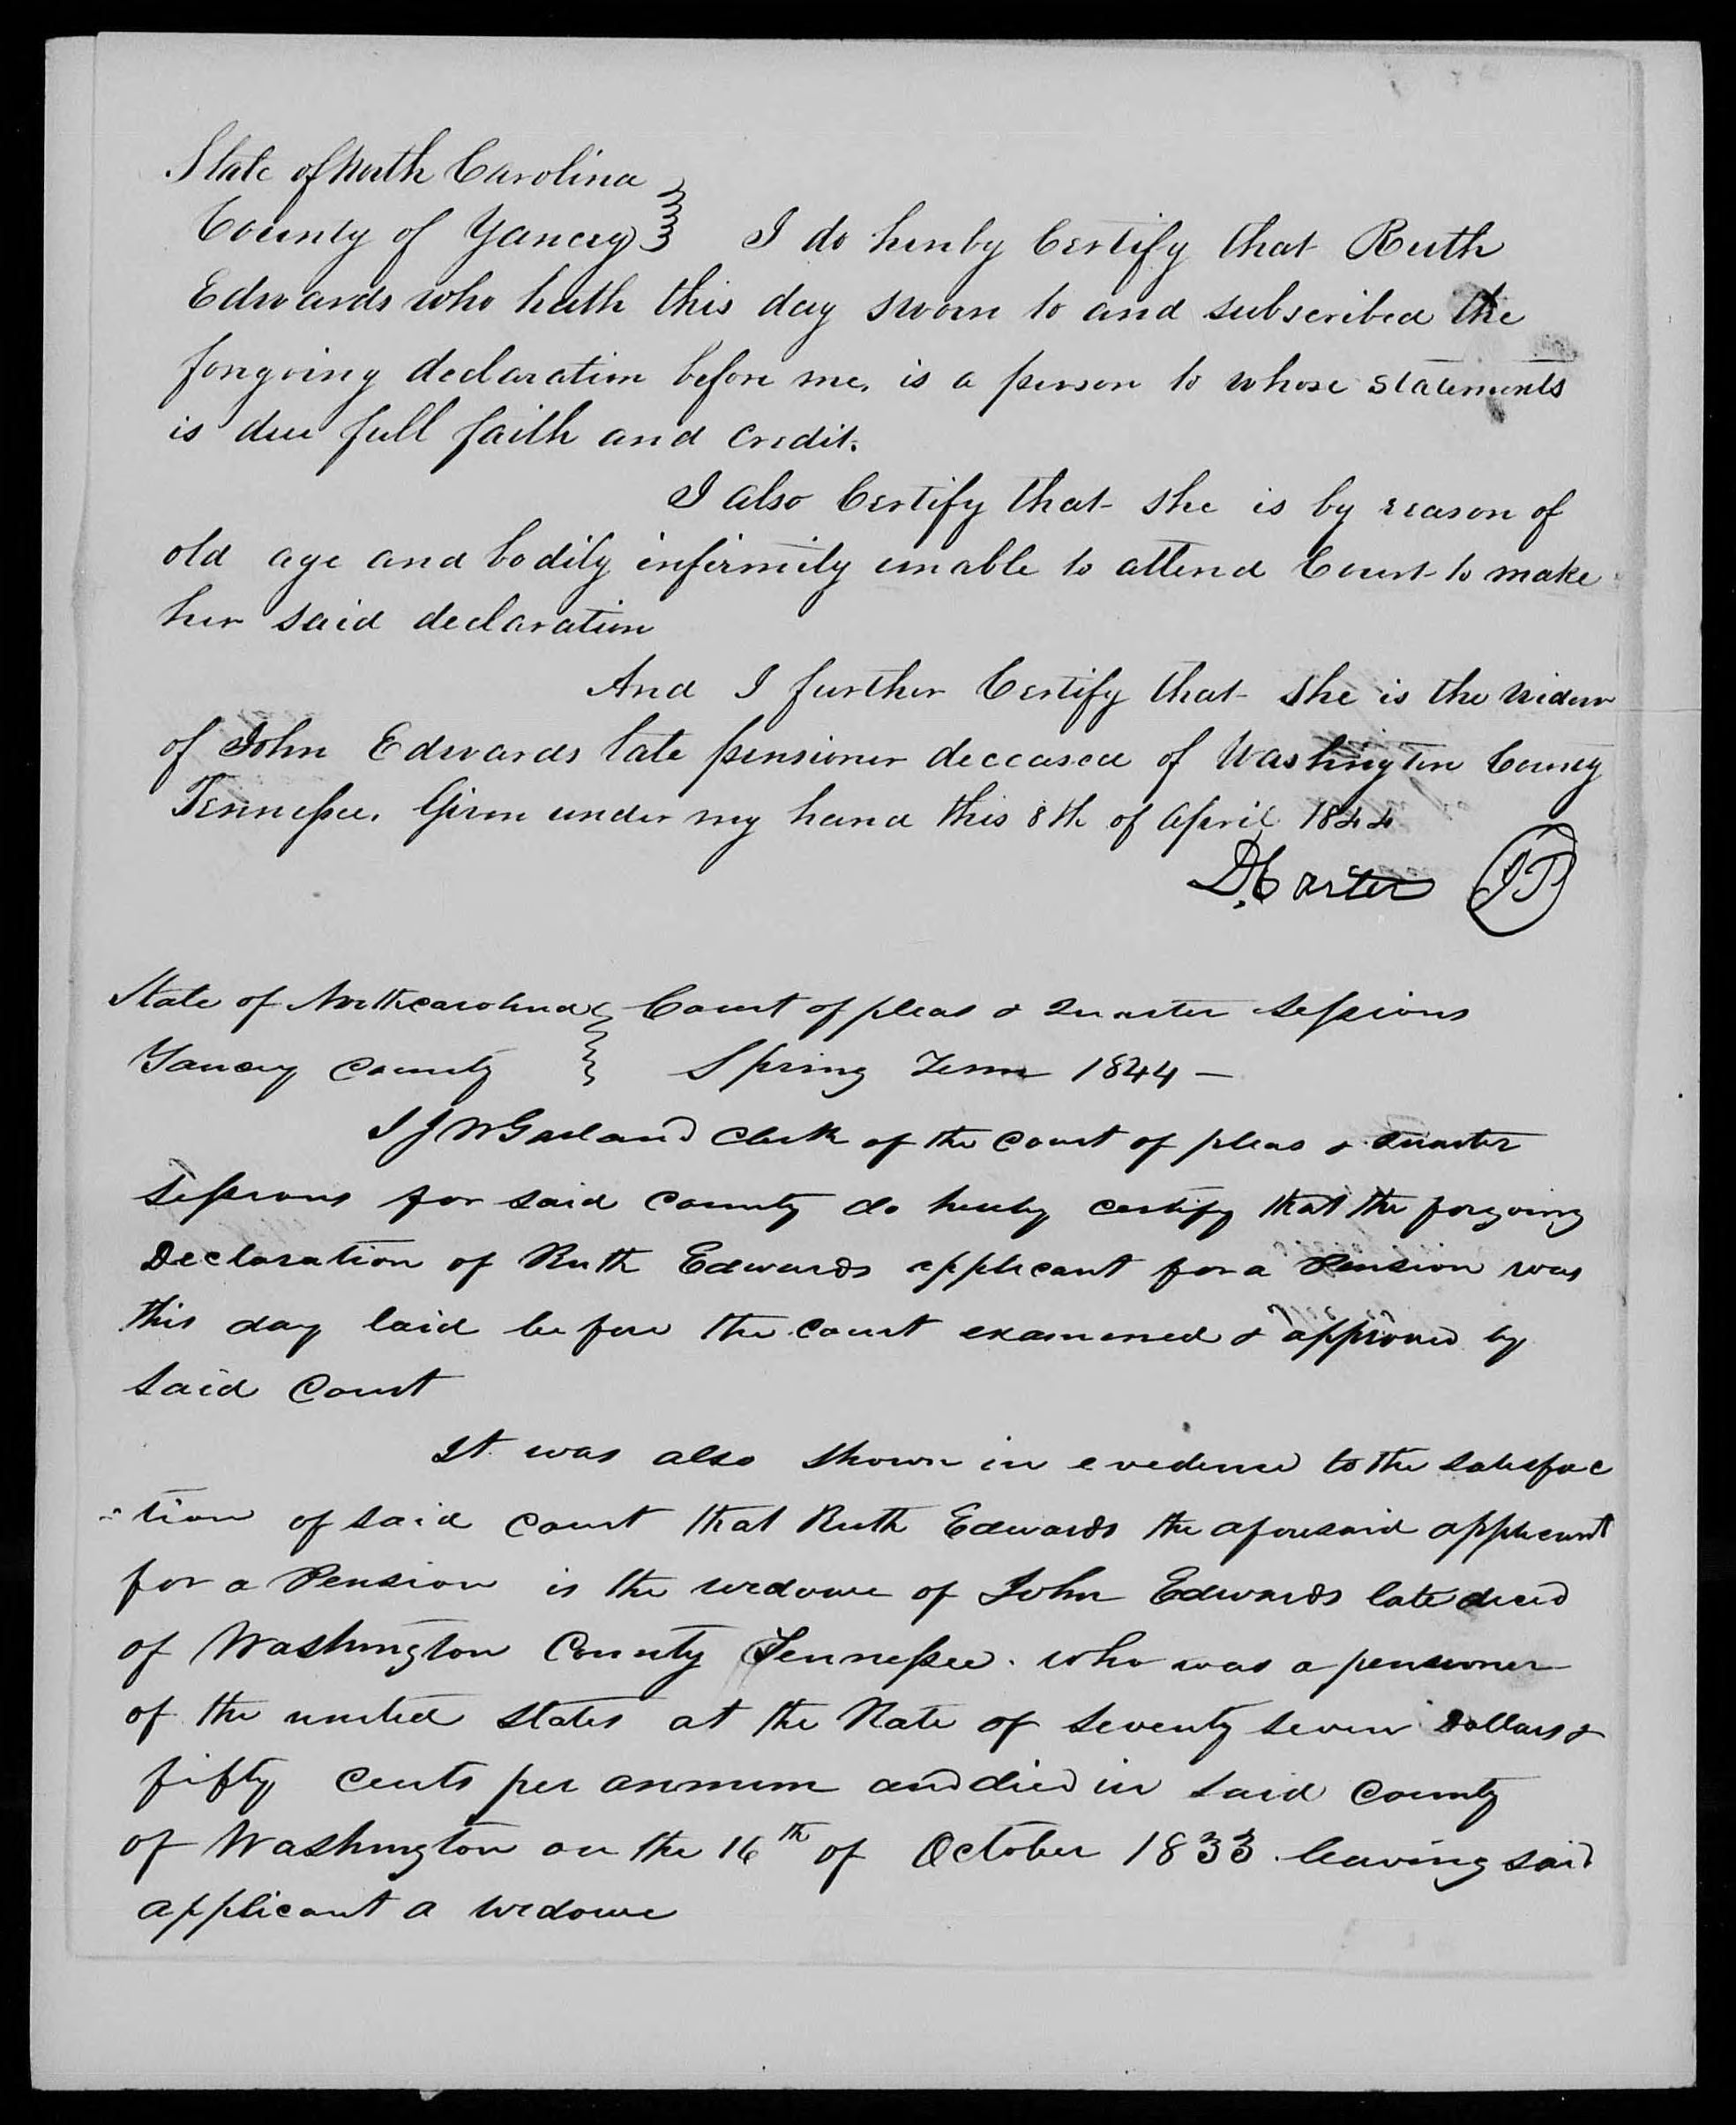 State of North Carolina
County of Yancey } I do herby Certify that Ruth
Edwards who hath this day sworn to and subscribed the
forgoing declaration before me, is a person to whose statements
is due full faith and credit.
I also Certify that she is by reason of
old age and bodily infirmity unable to attend Court to make
her said declaration
And I further Certify that she is the widow
of John Edwards late pensioner deceased of Washington County
Tennessee. Given under my hand this 8th of April 1844
D. Carter JP
State of Northcarolina } Court of pleas & Quarter Sessions
Yancey County } Spring Term 1844 —
I J W Garland Clerk of the Court of pleas & Quarter
Sessions for said County do hereby certify that the forgoing
Declaration of Ruth Edwards applicant for a Pension was
this day laid before the Court examined & approved by
said Court
It was also shown in evidence to the satisfac
-tion of said Court that Ruth Edwards the aforesaid applicant
for a Pension is the widowe of John Edwards late decd
of Washington County Tennessee. who was a pensioner
of the united states at the Rate of Seventy seven Dollars &
fifty cents per annum and died in said County
of Washington on the 16th of October 1833. leaving said
applicant a widowe